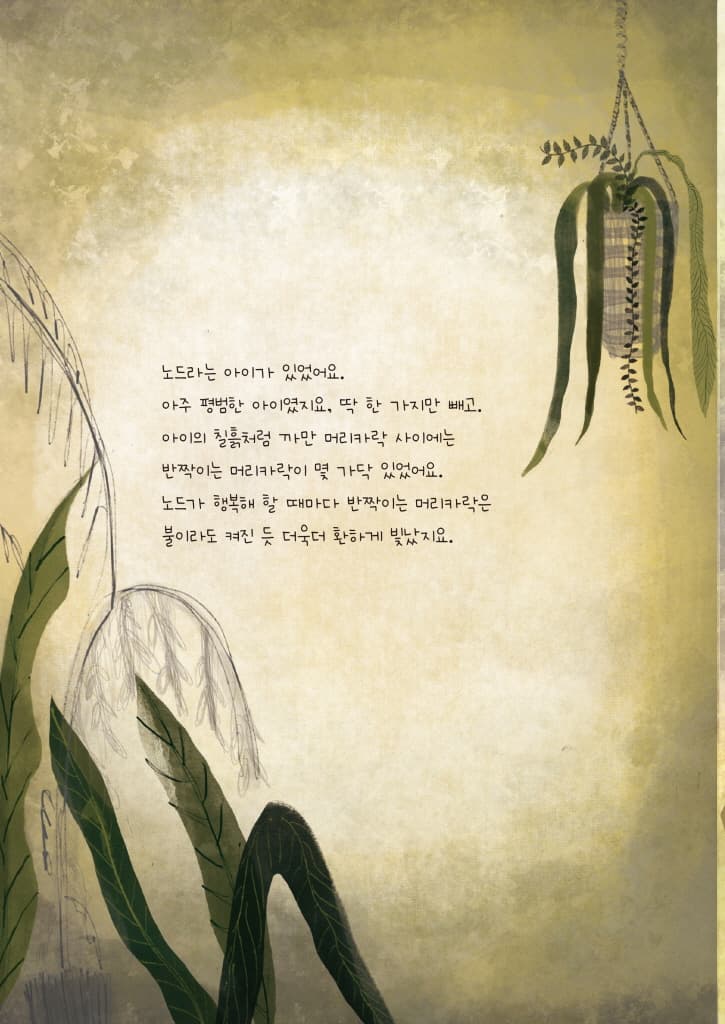 노드라는 아이가 있었어요.
아주 평범한 아이였지요, 딱 한 가지만 빼고.
아이의 칠흙처럼 까만 머리카락 사이에는
반짝이는 머리카락이 몇 가닥 있었어요.
노드가 행복해 할 때마다 반짝이는 머리카락은
불이라도 켜진 듯 더욱더 환하게 빛났지요.